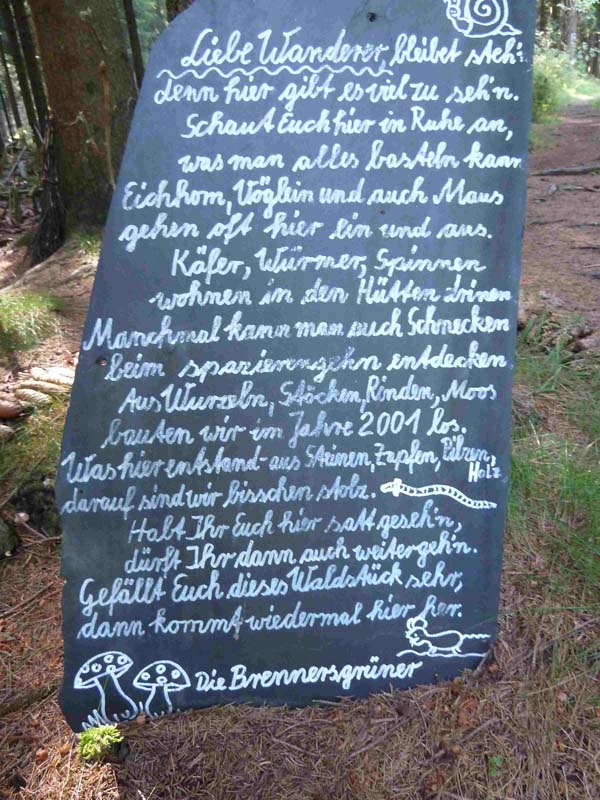 Liebe Wanderer, bleibet steh'n
denn hier gibt es viel zu seh'n.
Schaut Euch hier in Ruhe an,
was man alles basteln kann
Eichhorn, Vöglein und auch Maus
gehen oft hier ein und aus.
Käfer, Würmer, Spinnen
wohnen in den Hütten drinen
Manchmal kann man auch Schnecken
beim spazierengehn entdecken
Aus Wurzeln, Stöcken, Rinden, Moos
bauten wir im Jahre 2001 los.
Was hier entstand aus Steinen, Zapfen, Pilzen, Holz
darauf sind wir bisschen stolz.
Habt Ihr Euch hier satt geseh'n,
dürft Ihr dann auch weitergeh'n.
Gefällt Euch dieses Waldstück sehr,
dann kommt wiedermal hier her.
Die Brennersgrüner